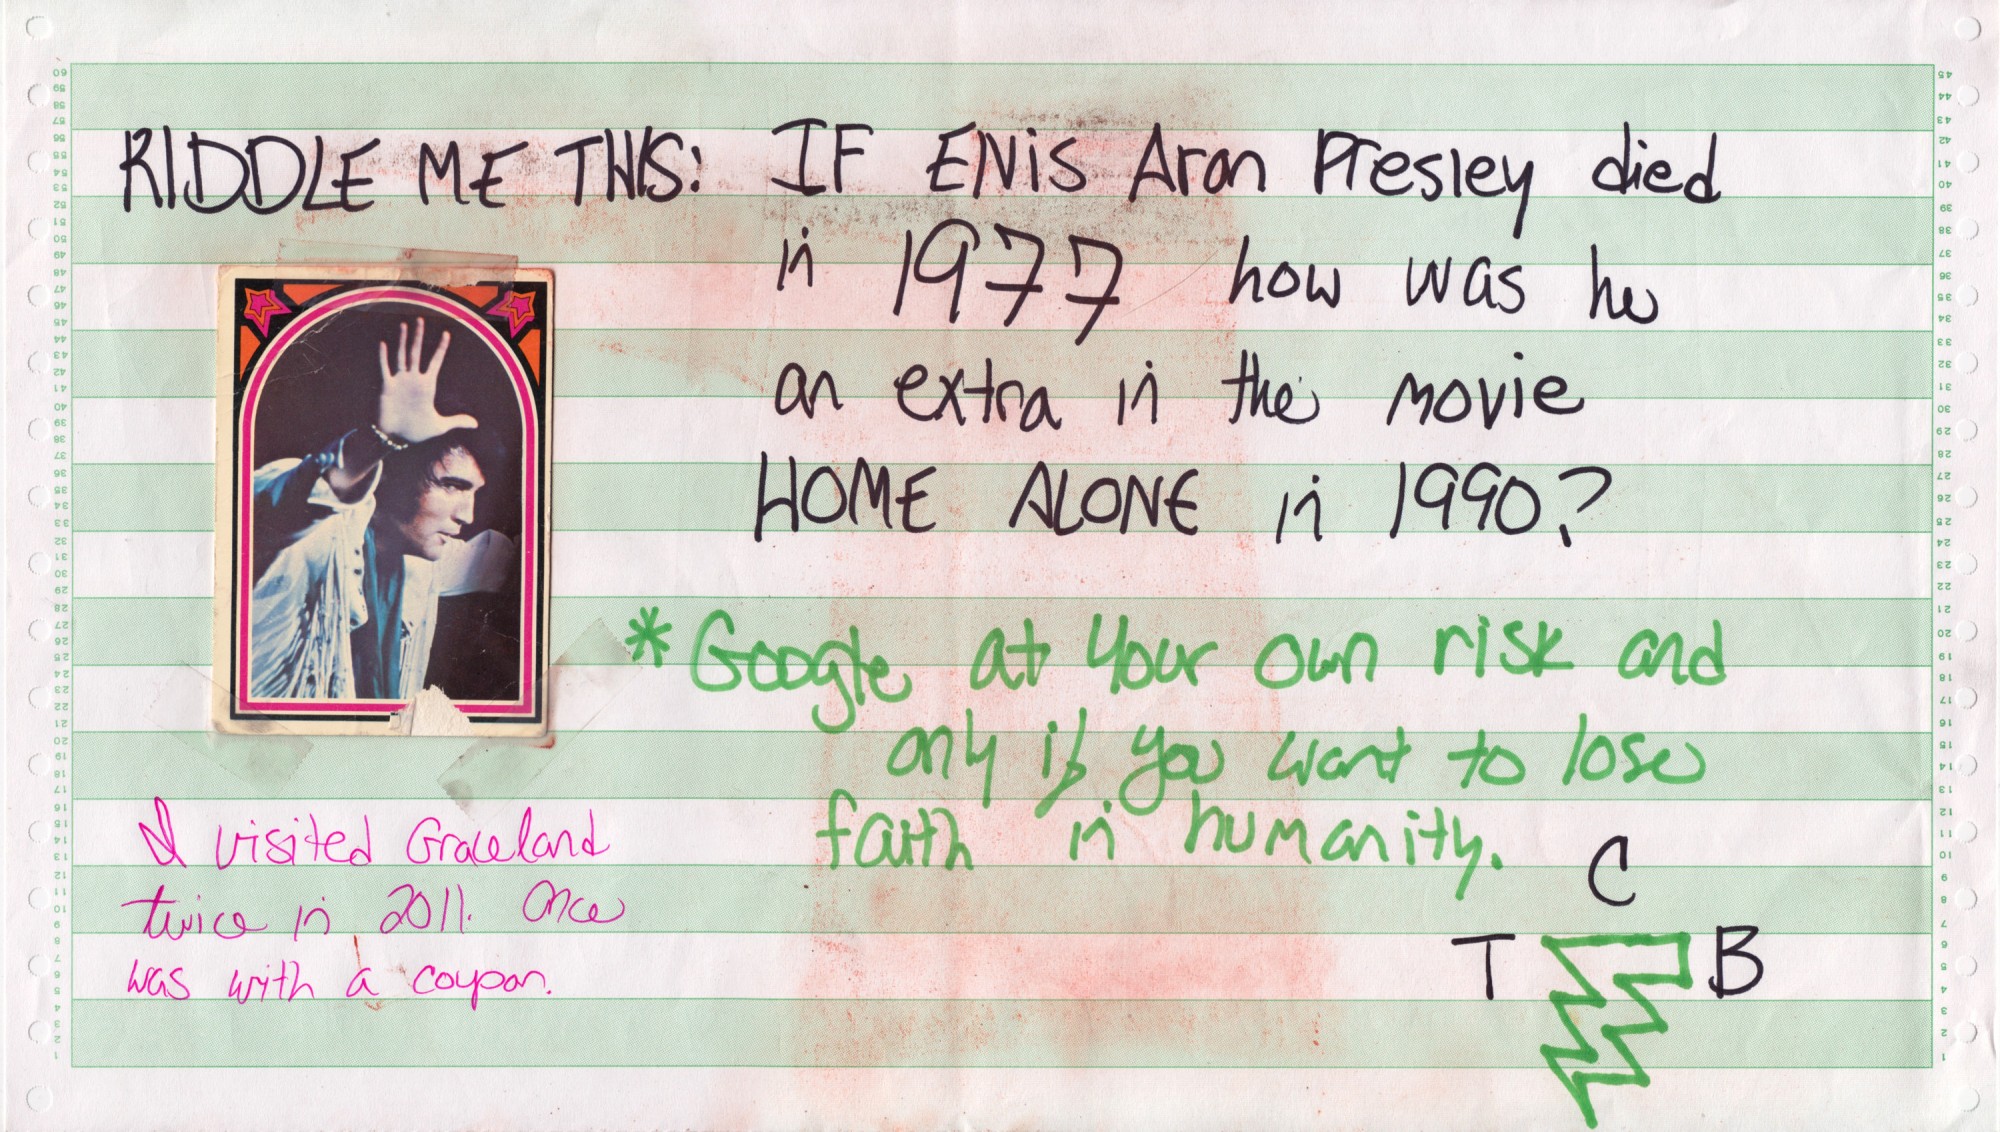 RIDDLE ME THIS: IF ElVis Aron Presley died
in 1977 how was he
an extra in the movie
HOME ALONE in 1990?
*Google at your own risk and
only if you want to lose
faith in humanity.
I visited Graceland
twice in 2011. Once
was with a coupon.
C
T B